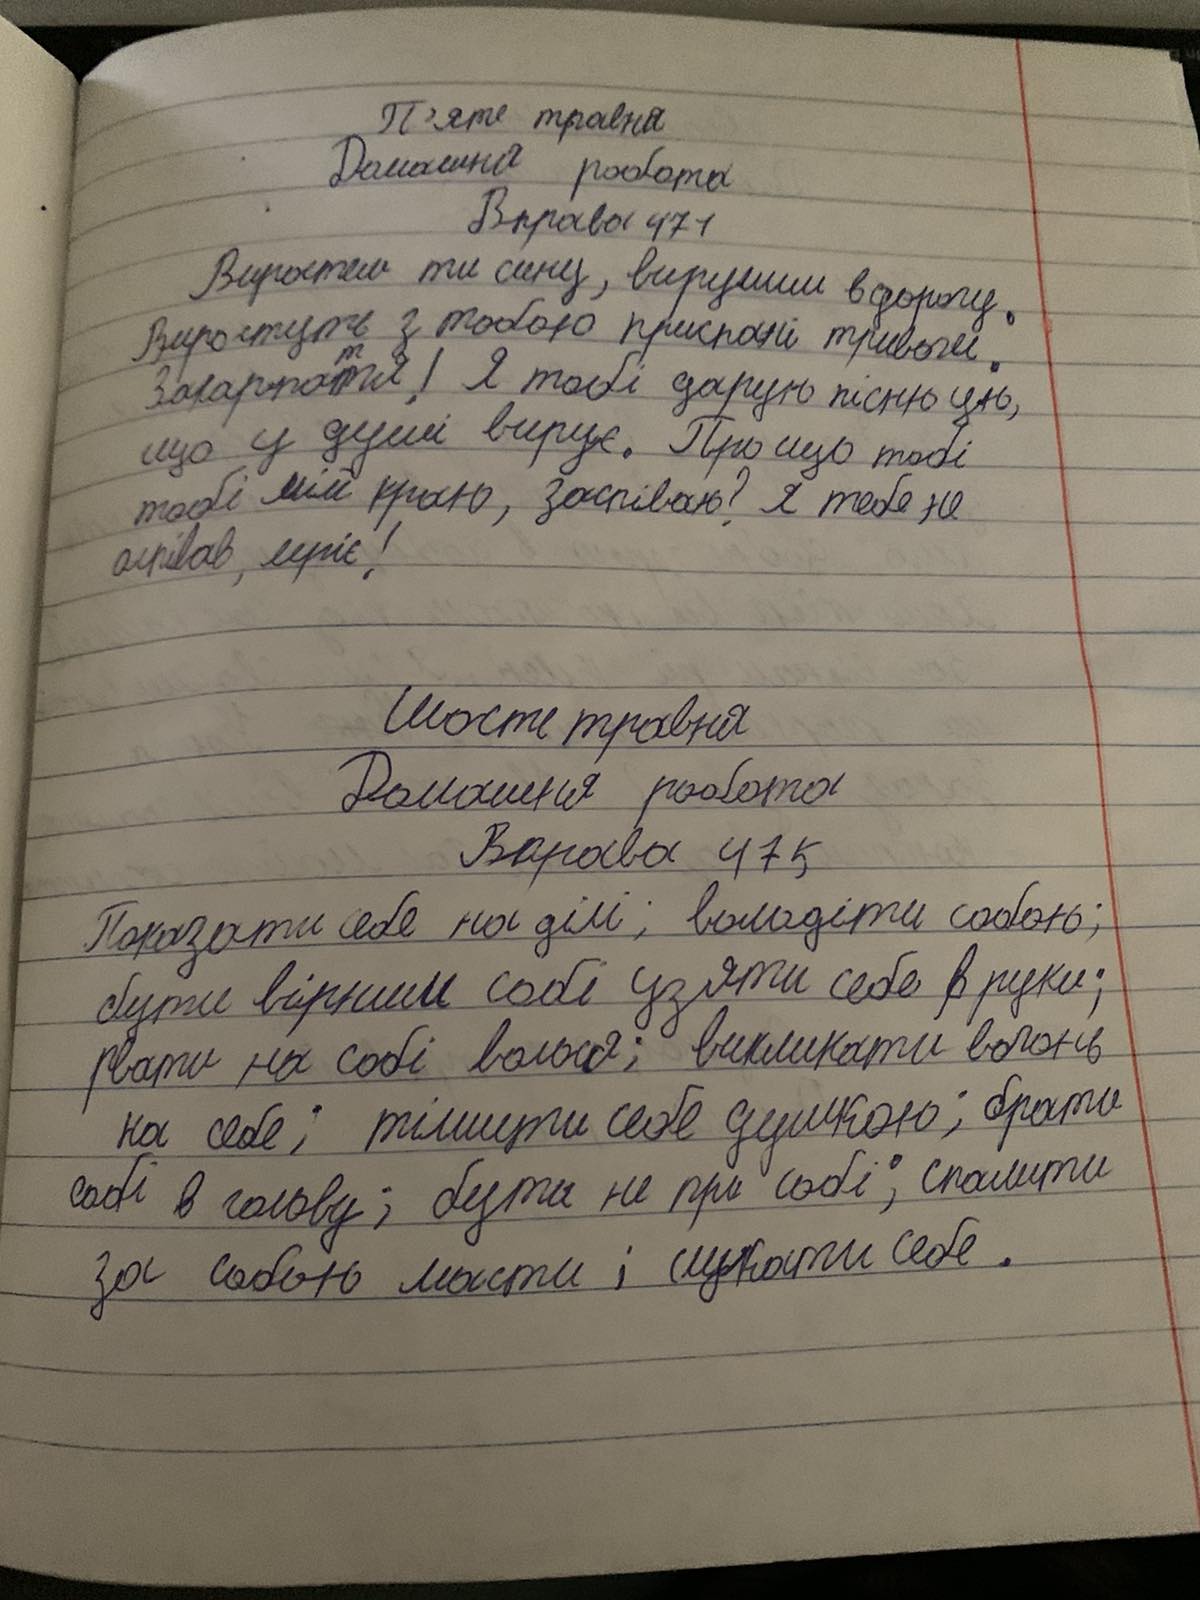 П'яте травня
Домашня робота
Вправа 471
Виростеш ти сину, вирушиш в дорогу.
Виростуть з тобою приспані тривоги.
Закарпаття! Я тобі дарую пісню цю,
що у душі вирує. Про що тобі
тобі мій краю, заспіваю? Я тебе не
оспівав, мріє!
Шосте травня
Домашня робота
Вправа 475
Показати себе на ділі; володіти собою;
бути вірним собі узяти себе в руки;
рвати на собі волосся; викликати вогонь
на себе; тішити себе думкою; брати
собі в голову; бути не при собі; спалити
за собою мости; шукати себе.